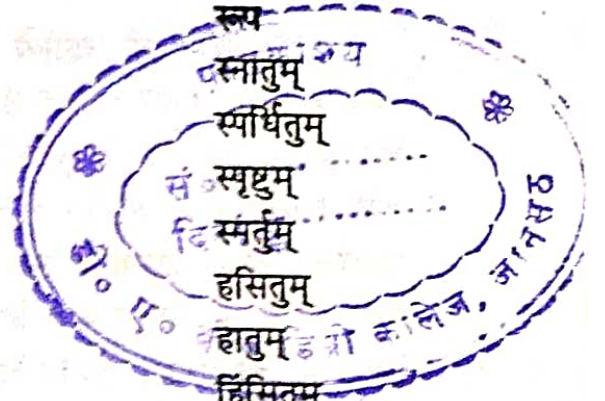 रूप
स्नातुम्
स्पर्धितुम्
स्प्रष्टुम्
स्मर्तुम्
हसितुम्
हातुम्
हिंसितुम्
सं०
दि
डी० ए० डिग्री कालेज, जानसठ